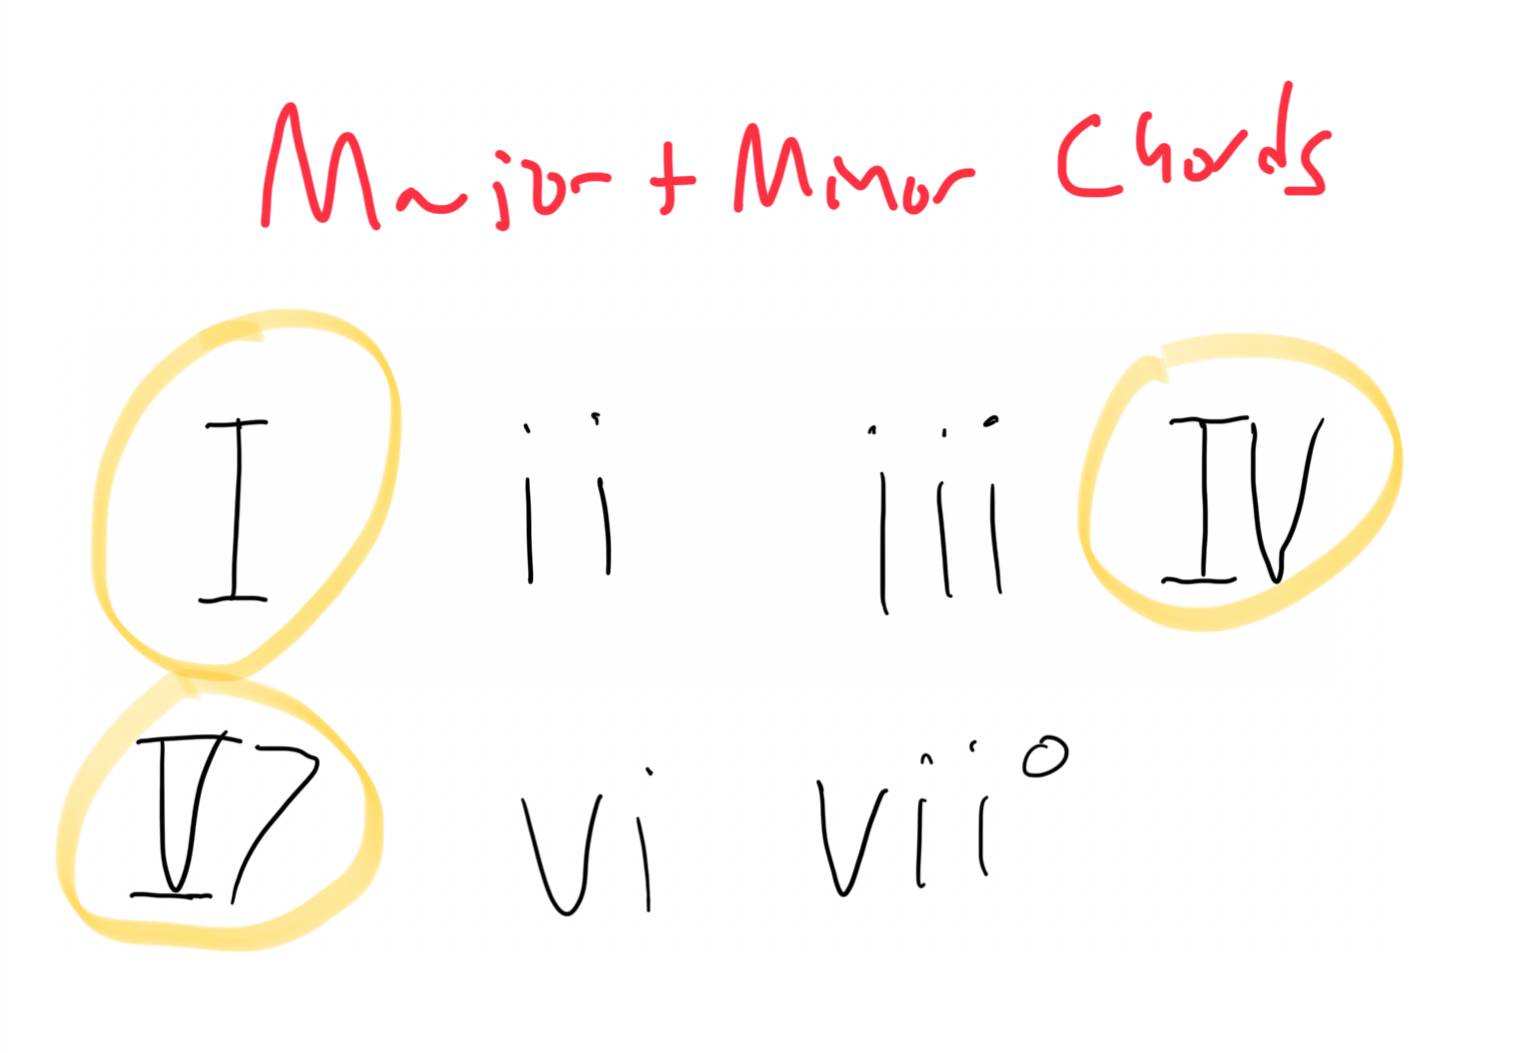 Major + Minor Chords
I ii iii IV
V7 vi vii°